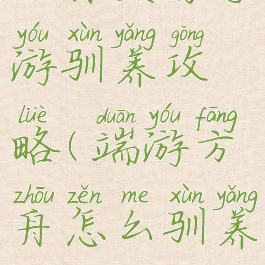 yóu xùn yǎng gōng
游驯养攻
lüè duān yóu fāng
略(端游方
zhōu zěn me xùn yǎng
舟怎么驯养